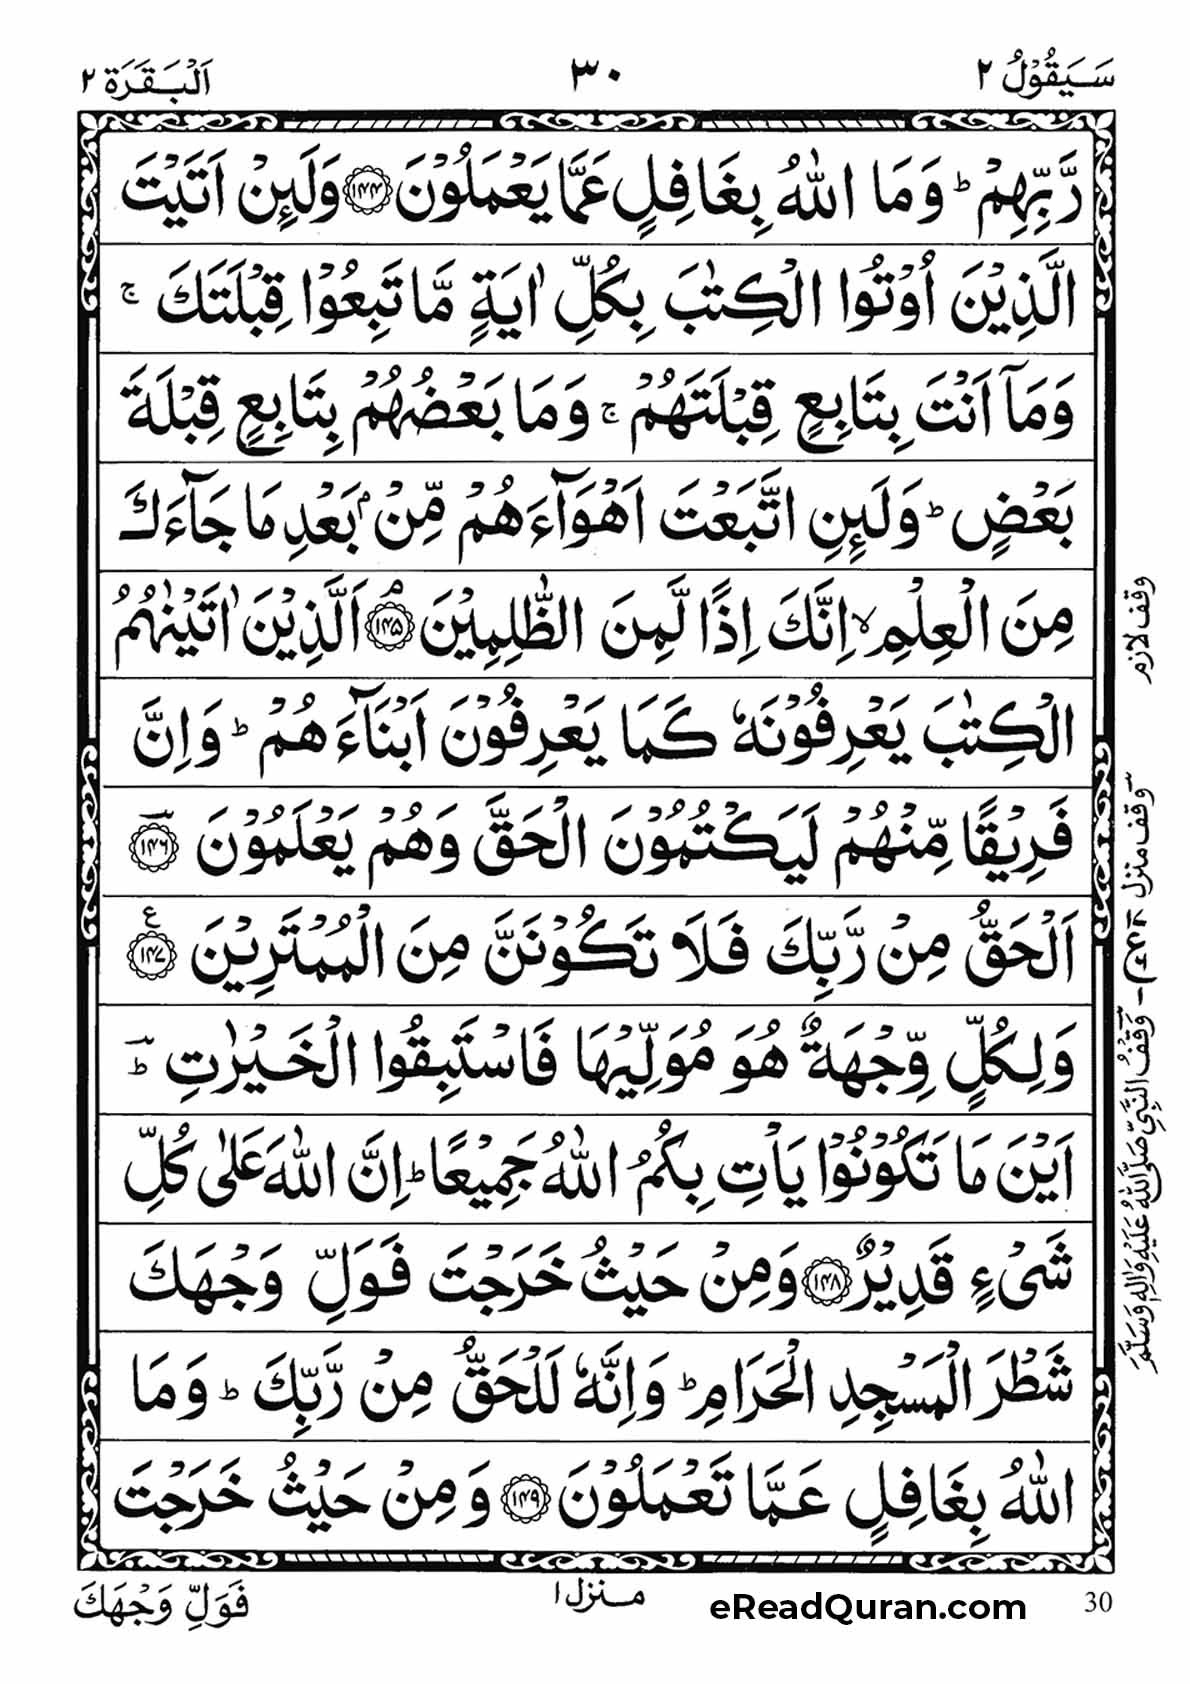 سَيَقُوْلُ ٢
٣٠
اَلْبَقَرَة ٢
رَّبِّهِمْ ؕ وَمَا اللّٰهُ بِغَافِلٍ عَمَّا يَعْمَلُوْنَ ﴿۱۴۴﴾ وَلَىِٕنْ اَتَيْتَ
الَّذِيْنَ اُوْتُوا الْكِتٰبَ بِكُلِّ اٰيَةٍ مَّا تَبِعُوْا قِبْلَتَكَ ۚ
وَمَاۤ اَنْتَ بِتَابِعٍ قِبْلَتَهُمْ ۚ وَمَا بَعْضُهُمْ بِتَابِعٍ قِبْلَةَ
بَعْضٍ ؕ وَلَىِٕنِ اتَّبَعْتَ اَهْوَآءَهُمْ مِّنْۢ بَعْدِ مَا جَآءَكَ
مِنَ الْعِلْمِ ۙ اِنَّكَ اِذًا لَّمِنَ الظّٰلِمِيْنَ ﴿۱۴۵﴾ۘ اَلَّذِيْنَ اٰتَيْنٰهُمُ
الْكِتٰبَ يَعْرِفُوْنَهٗ كَمَا يَعْرِفُوْنَ اَبْنَآءَهُمْ ؕ وَاِنَّ
فَرِيْقًا مِّنْهُمْ لَيَكْتُمُوْنَ الْحَقَّ وَهُمْ يَعْلَمُوْنَ ﴿۱۴۶﴾
اَلْحَقُّ مِنْ رَّبِّكَ فَلَا تَكُوْنَنَّ مِنَ الْمُمْتَرِيْنَ ﴿۱۴۷﴾ ع
وَلِكُلٍّ وِّجْهَةٌ هُوَ مُوَلِّيْهَا فَاسْتَبِقُوا الْخَيْرٰتِ ؕ
اَيْنَ مَا تَكُوْنُوْا يَاْتِ بِكُمُ اللّٰهُ جَمِيْعًا ؕ اِنَّ اللّٰهَ عَلٰى كُلِّ
شَىْءٍ قَدِيْرٌ ﴿۱۴۸﴾ وَمِنْ حَيْثُ خَرَجْتَ فَوَلِّ وَجْهَكَ
شَطْرَ الْمَسْجِدِ الْحَرَامِ ؕ وَاِنَّهٗ لَلْحَقُّ مِنْ رَّبِّكَ ؕ وَمَا
اللّٰهُ بِغَافِلٍ عَمَّا تَعْمَلُوْنَ ﴿۱۴۹﴾ وَمِنْ حَيْثُ خَرَجْتَ
وقف لازم
وقف منزل
وَقْفُ النَّبِيِّ صَلَّى اللّٰهُ عَلَيْهِ وَاٰلِهٖ وَسَلَّمَ
فَوَلِّ وَجْهَكَ
منزل ١
eReadQuran.com
30